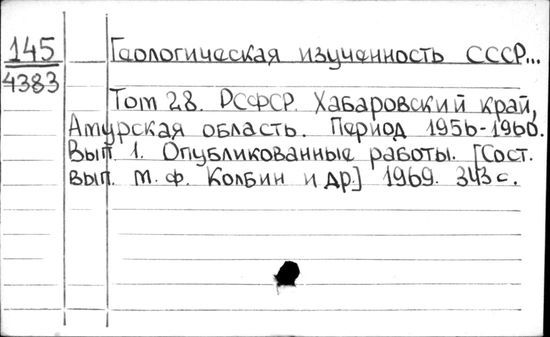 145 Геологическая изученность СССР...
4383
Том 28. РСФСР. Хабаровский край,
Амурская область. Период 1956-1960.
Вып 1. Опубликованные работы. [Сост.
вып. М. Ф. Колбин и др.] 1969. 343 с.